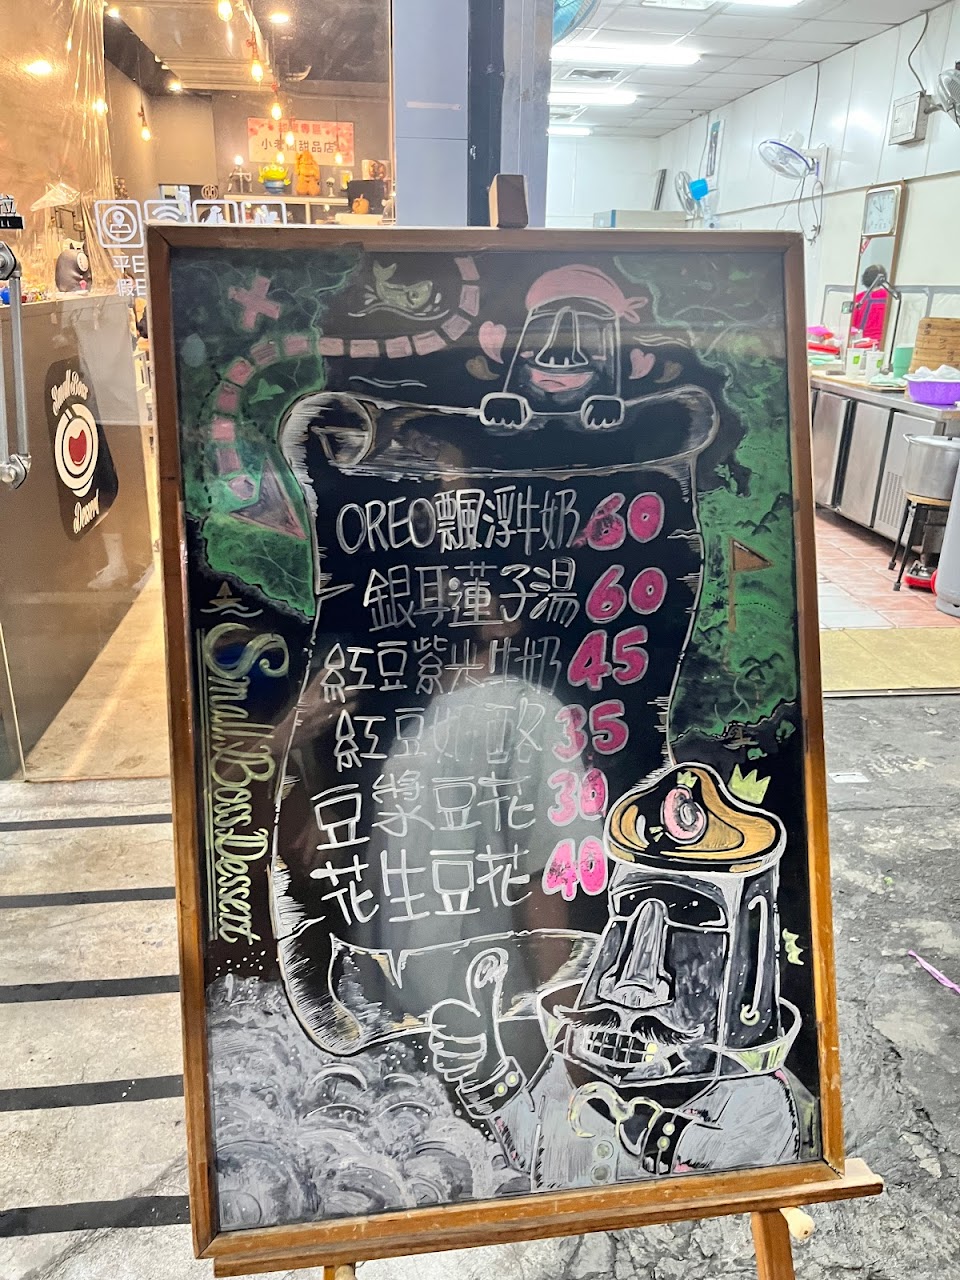 平日
假日
甜品店
Small Boss
Dessert
OREO飄浮牛奶60
銀耳蓮子湯60
紅豆紫米牛奶45
紅豆奶酪35
豆漿豆花30
花生豆花40
Small Boss Dessert